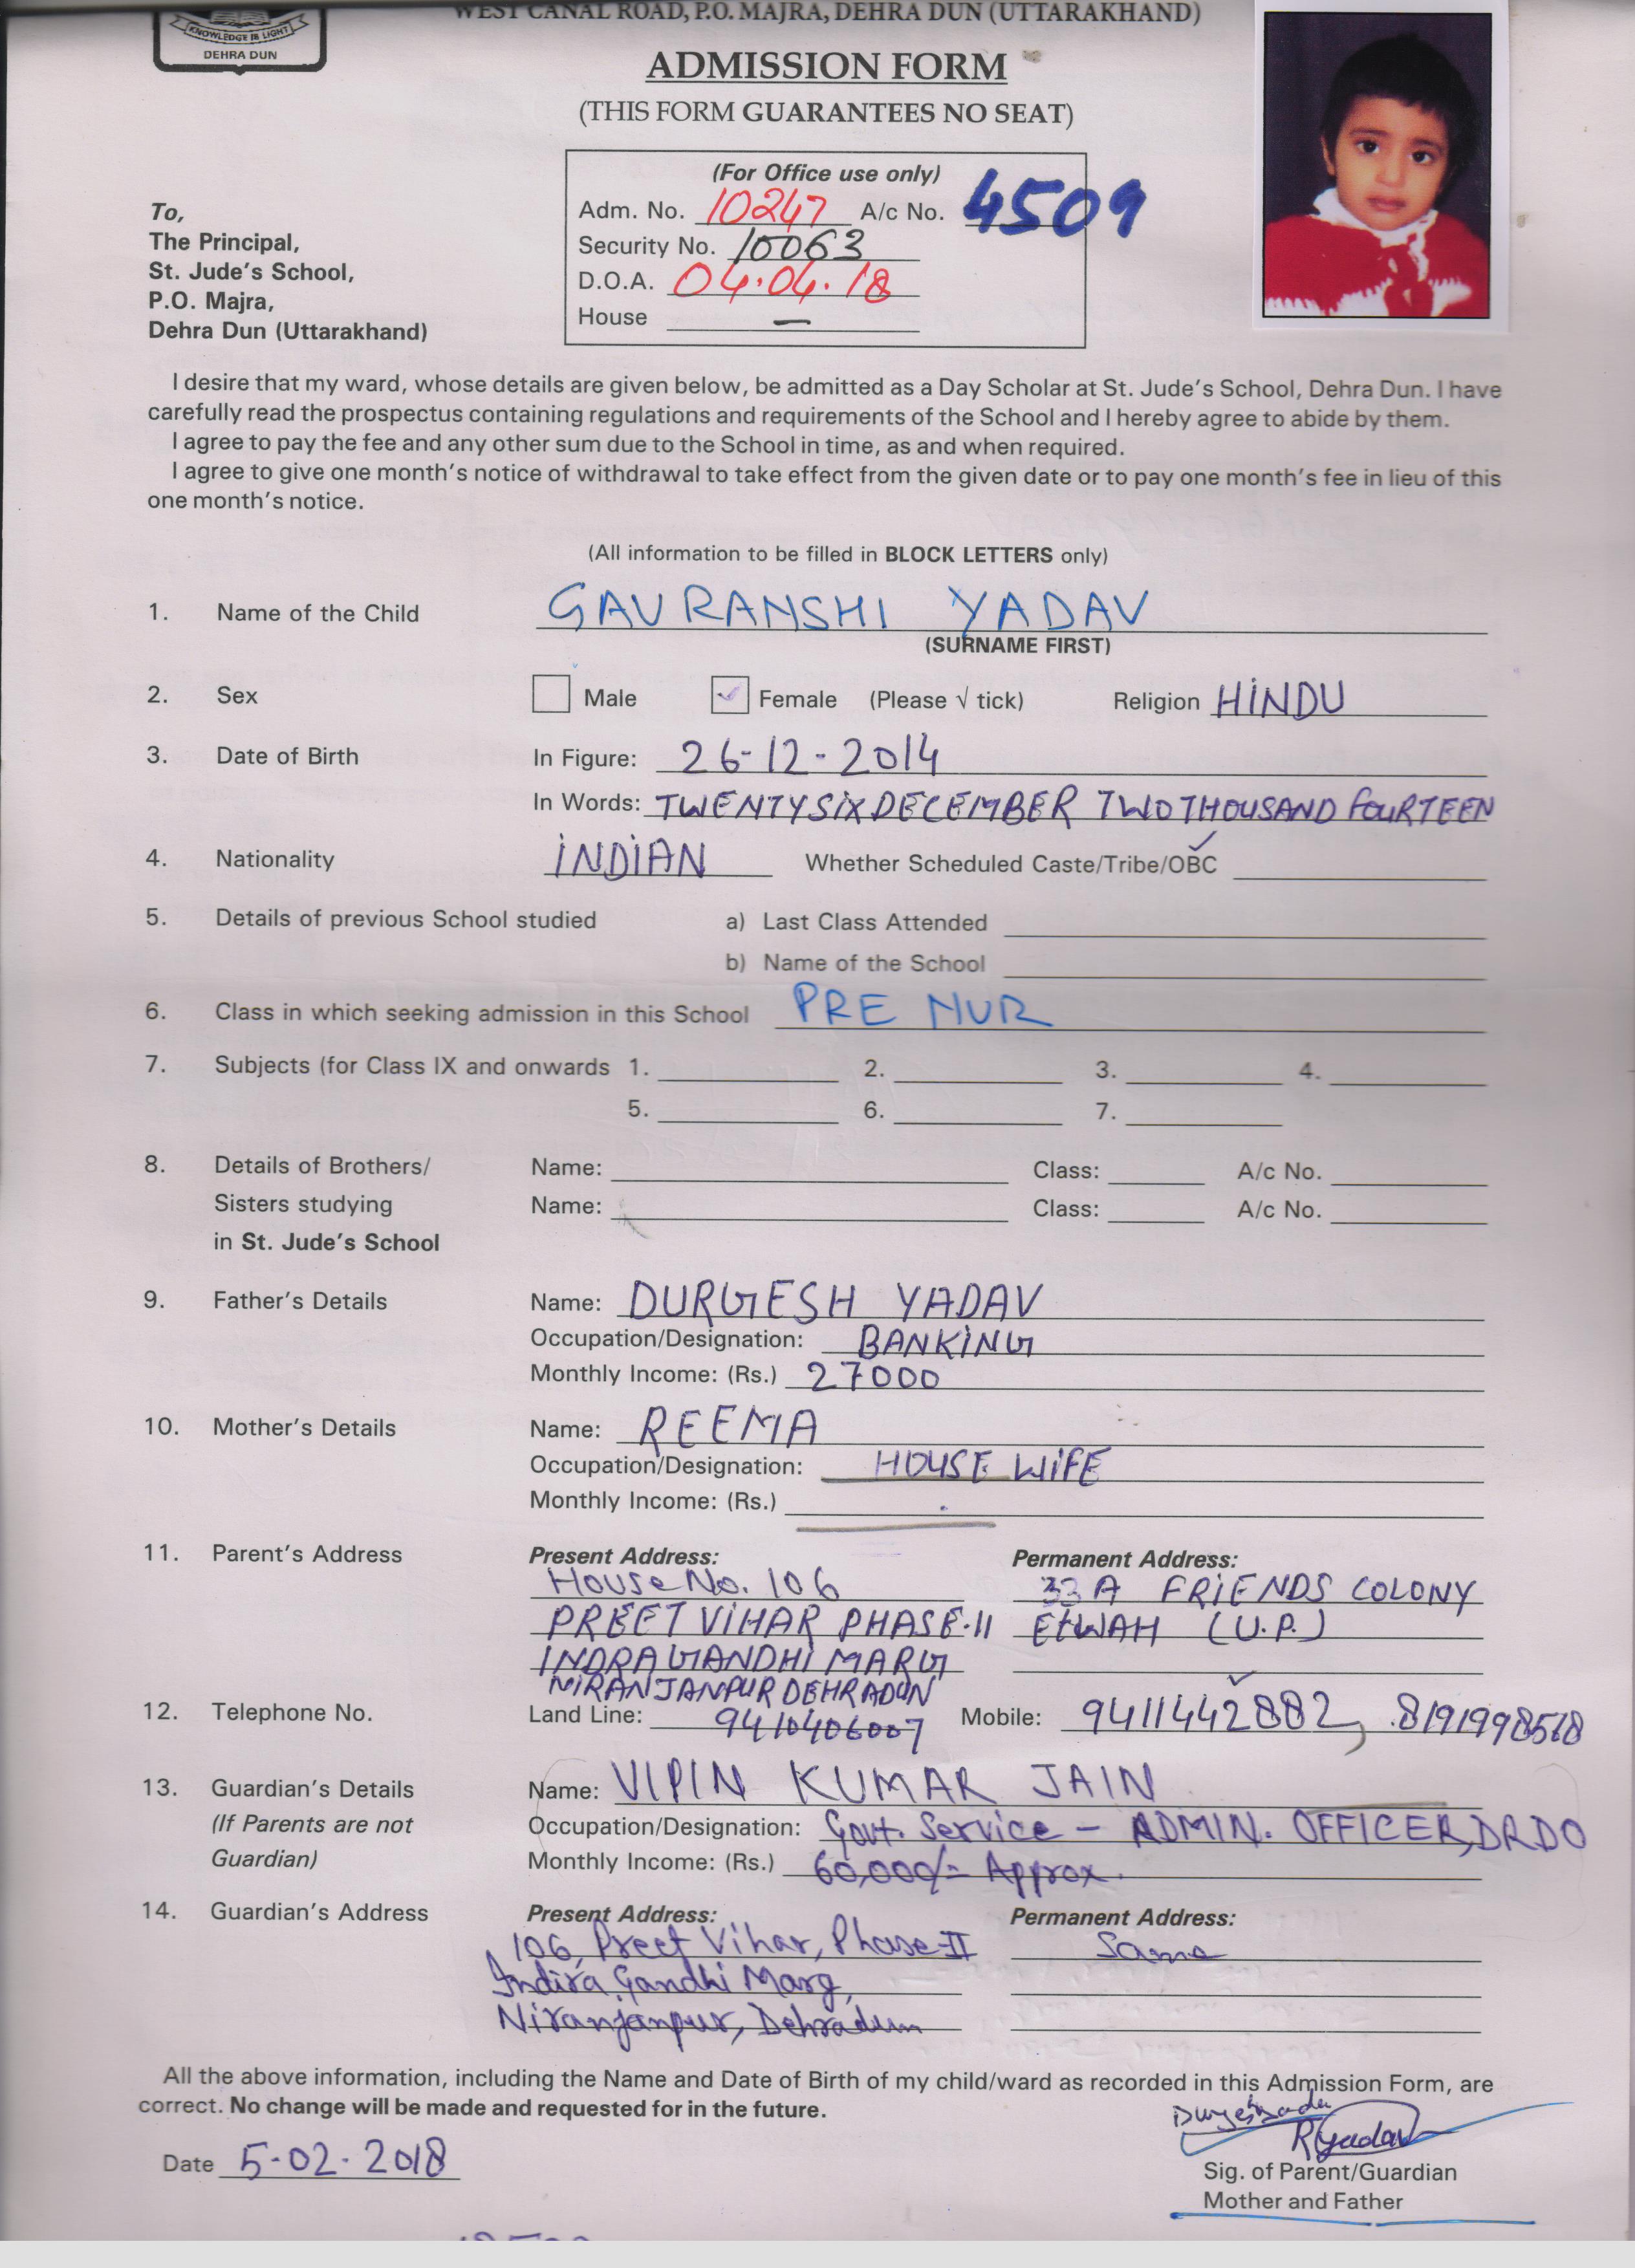 WEST CANAL ROAD, P.O. MAJRA, DEHRA DUN (UTTARAKHAND)
KNOWLEDGE IS LIGHT
DEHRA DUN
ADMISSION FORM
(THIS FORM GUARANTEES NO SEAT)
(For Office use only)
Adm. No. 10247 A/c No. 4509
Security No. 10063
D.O.A. 04.04.18
House —
To,
The Principal,
St. Jude's School,
P.O. Majra,
Dehra Dun (Uttarakhand)
I desire that my ward, whose details are given below, be admitted as a Day Scholar at St. Jude's School, Dehra Dun. I have
carefully read the prospectus containing regulations and requirements of the School and I hereby agree to abide by them.
I agree to pay the fee and any other sum due to the School in time, as and when required.
I agree to give one month's notice of withdrawal to take effect from the given date or to pay one month's fee in lieu of this
one month's notice.
(All information to be filled in BLOCK LETTERS only)
1. Name of the Child GAURANSHI YADAV
(SURNAME FIRST)
2. Sex Male ✓ Female (Please √ tick) Religion HINDU
3. Date of Birth In Figure: 26-12-2014
In Words: TWENTYSIX DECEMBER TWO THOUSAND FOURTEEN
4. Nationality INDIAN Whether Scheduled Caste/Tribe/OBC ✓
5. Details of previous School studied a) Last Class Attended
b) Name of the School
6. Class in which seeking admission in this School PRE NUR
7. Subjects (for Class IX and onwards 1. 2. 3. 4.
5. 6. 7.
8. Details of Brothers/ Name: Class: A/c No.
Sisters studying Name: Class: A/c No.
in St. Jude's School
9. Father's Details Name: DURGESH YADAV
Occupation/Designation: BANKING
Monthly Income: (Rs.) 27000
10. Mother's Details Name: REEMA
Occupation/Designation: HOUSE WIFE
Monthly Income: (Rs.)
11. Parent's Address Present Address: Permanent Address:
House No. 106 33 A FRIENDS COLONY
PREET VIHAR PHASE-II ETWAH (U.P.)
INDRA GANDHI MARG
NIRANJANPUR DEHRADUN
12. Telephone No. Land Line: 9410406007 Mobile: 9411442882, 8191998518
13. Guardian's Details Name: VIPIN KUMAR JAIN
(If Parents are not Occupation/Designation: Govt. Service - ADMIN. OFFICER, DRDO
Guardian) Monthly Income: (Rs.) 60,000/= Approx.
14. Guardian's Address Present Address: Permanent Address:
106, Preet Vihar, Phase-II Same
Indira Gandhi Marg,
Niranjanpur, Dehradun
All the above information, including the Name and Date of Birth of my child/ward as recorded in this Admission Form, are
correct. No change will be made and requested for in the future.
Durgesh Yadav
RYadav
Date 5-02-2018
Sig. of Parent/Guardian
Mother and Father